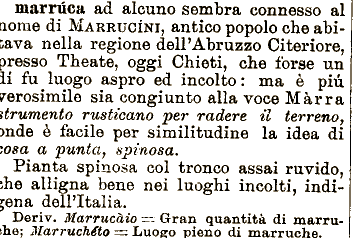 marrúca ad alcuno sembra connesso al
nome di MARRUCÍNI, antico popolo che abi-
tava nella regione dell'Abruzzo Citeriore,
presso Theate, oggi Chieti, che forse un
dì fu luogo aspro ed incolto: ma è piú
verosimile sia congiunto alla voce Màrra
strumento rusticano per radere il terreno,
onde è facile per similitudine la idea di
cosa a punta, spinosa.
Pianta spinosa col tronco assai ruvido,
che alligna bene nei luoghi incolti, indi-
gena dell'Italia.
Deriv. Marrucàio = Gran quantità di marru-
che; Marruchéto = Luogo pieno di marruche.